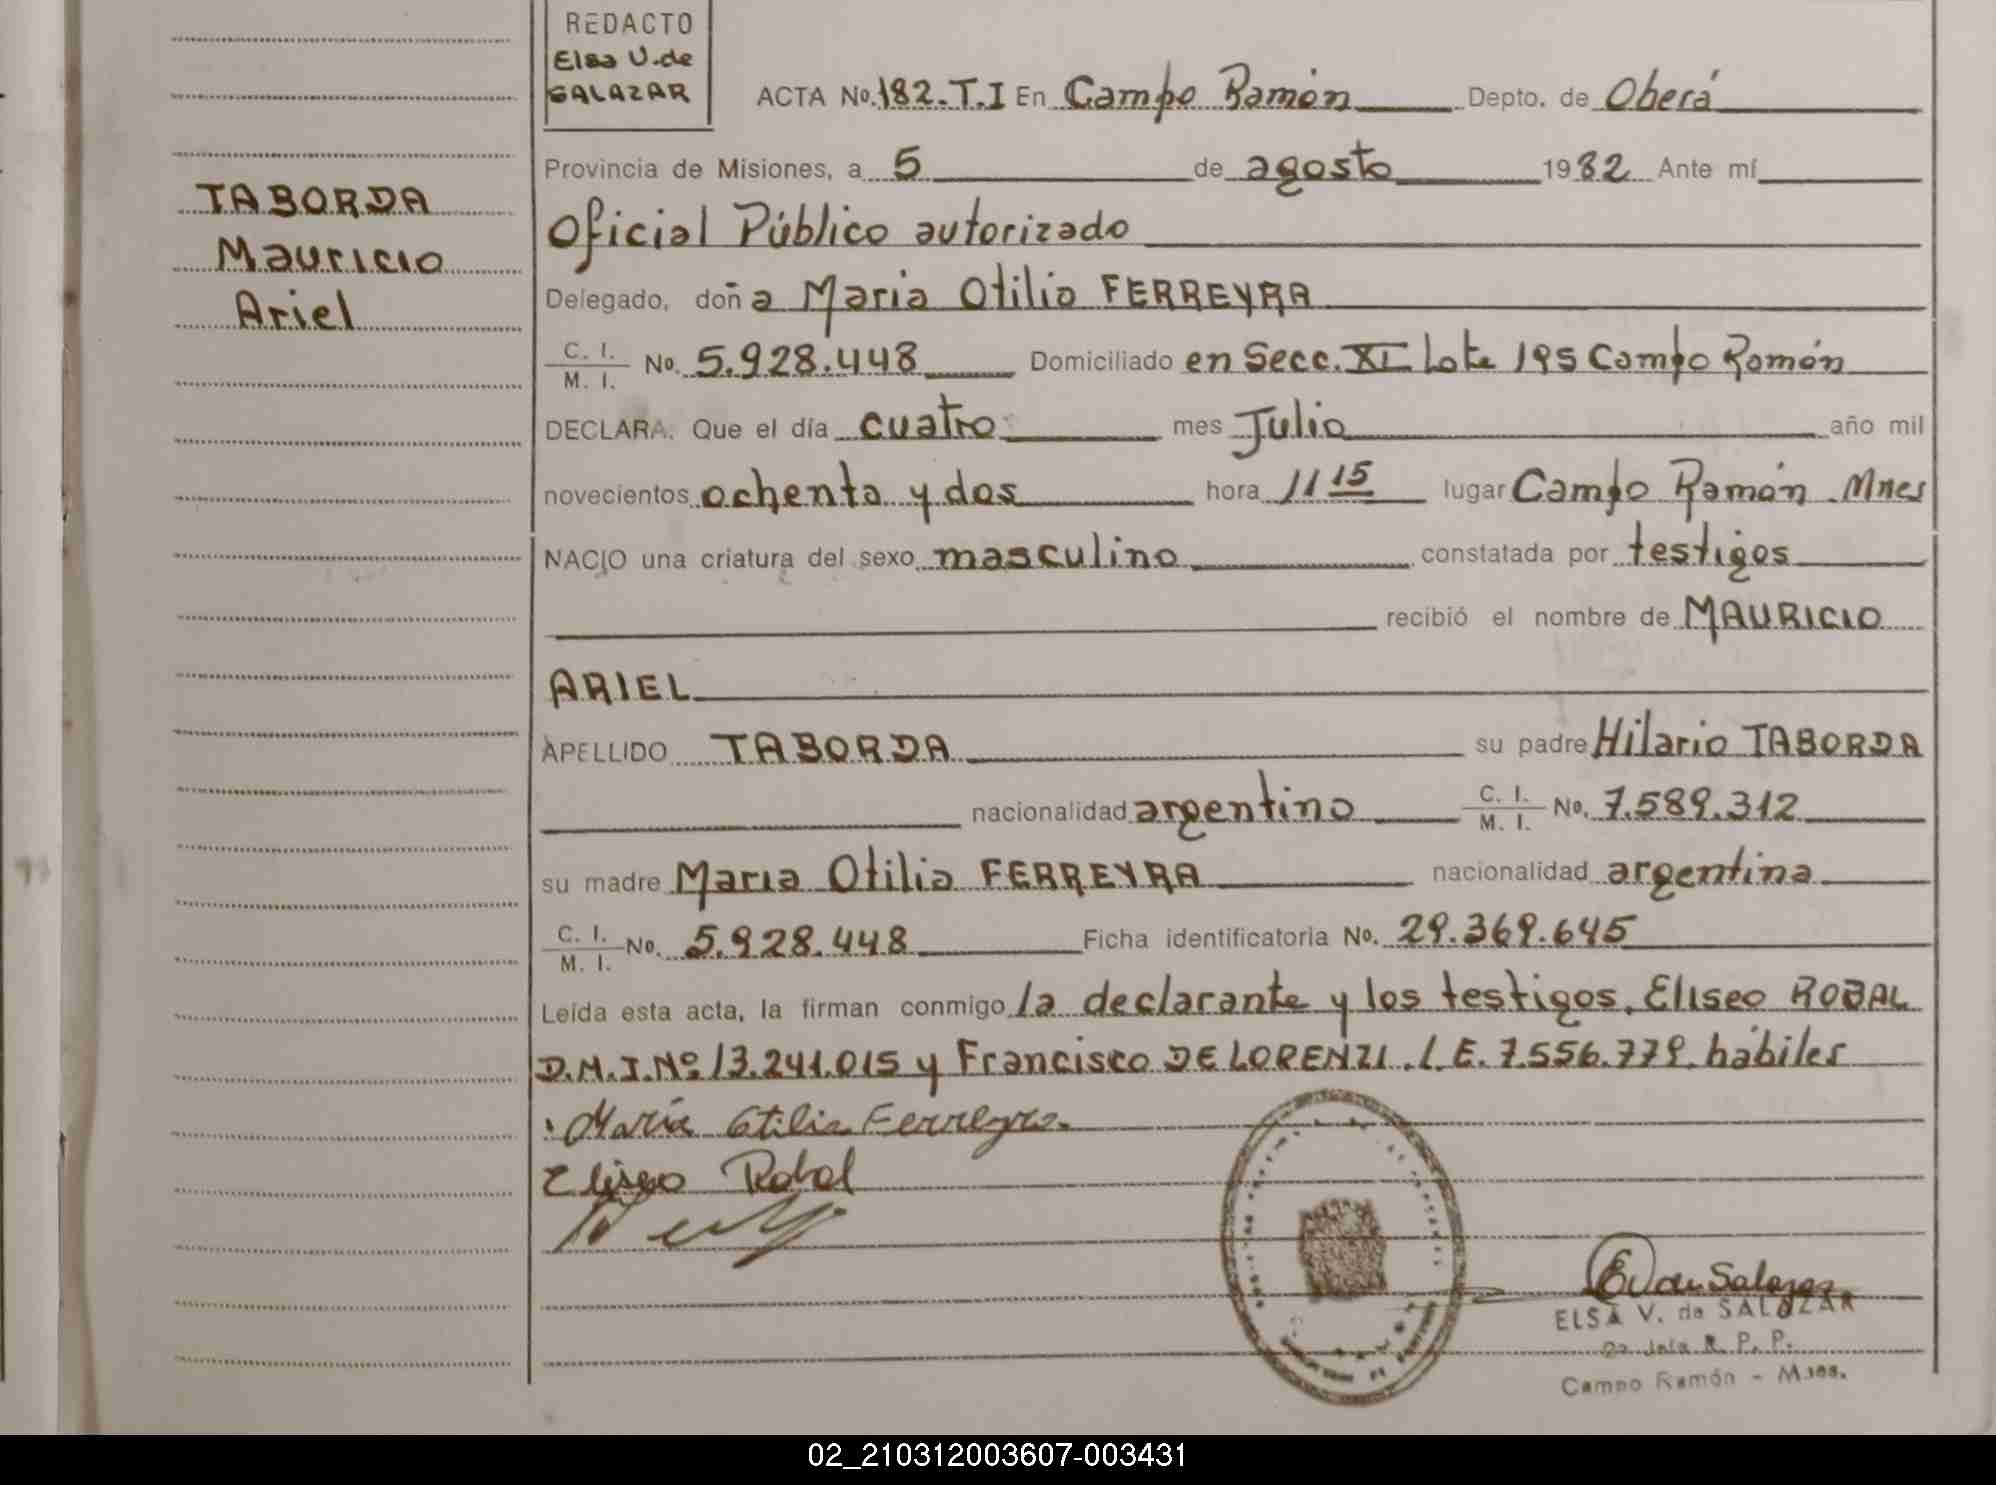 REDACTO
Elsa V. de
SALAZAR
ACTA No. 182.T.I En Campo Ramón Depto. de Oberá
Provincia de Misiones, a 5 de agosto 1982 Ante mí
Oficial Público autorizado
TABORDA
Mauricio
Ariel
Delegado, doña Maria Otilia FERREYRA
C. I.
M. I. No. 5.928.448 Domiciliado en Secc. XI Lote 195 Campo Ramón
DECLARA: Que el día cuatro mes Julio año mil
novecientos ochenta y dos hora 11 15 lugar Campo Ramón Mnes
NACIO una criatura del sexo masculino constatada por testigos
recibió el nombre de MAURICIO
ARIEL
APELLIDO TABORDA su padre Hilario TABORDA
nacionalidad argentino C. I. M. I. No. 7.589.312
su madre Maria Otilia FERREYRA nacionalidad argentina
C. I. M. I. No. 5.928.448 Ficha identificatoria No. 29.369.645
Leída esta acta, la firman conmigo la declarante y los testigos, Eliseo ROBAL
D.N.I. Nº 13.241.015 y Francisco DE LORENZI. L.E. 7.556.779. hábiles
María Otilia Ferreyra.
Eliseo Robal
E V de Salazar
ELSA V. de SALAZAR
R. P. P.
Campo Ramón - Mnes.
02_210312003607-003431